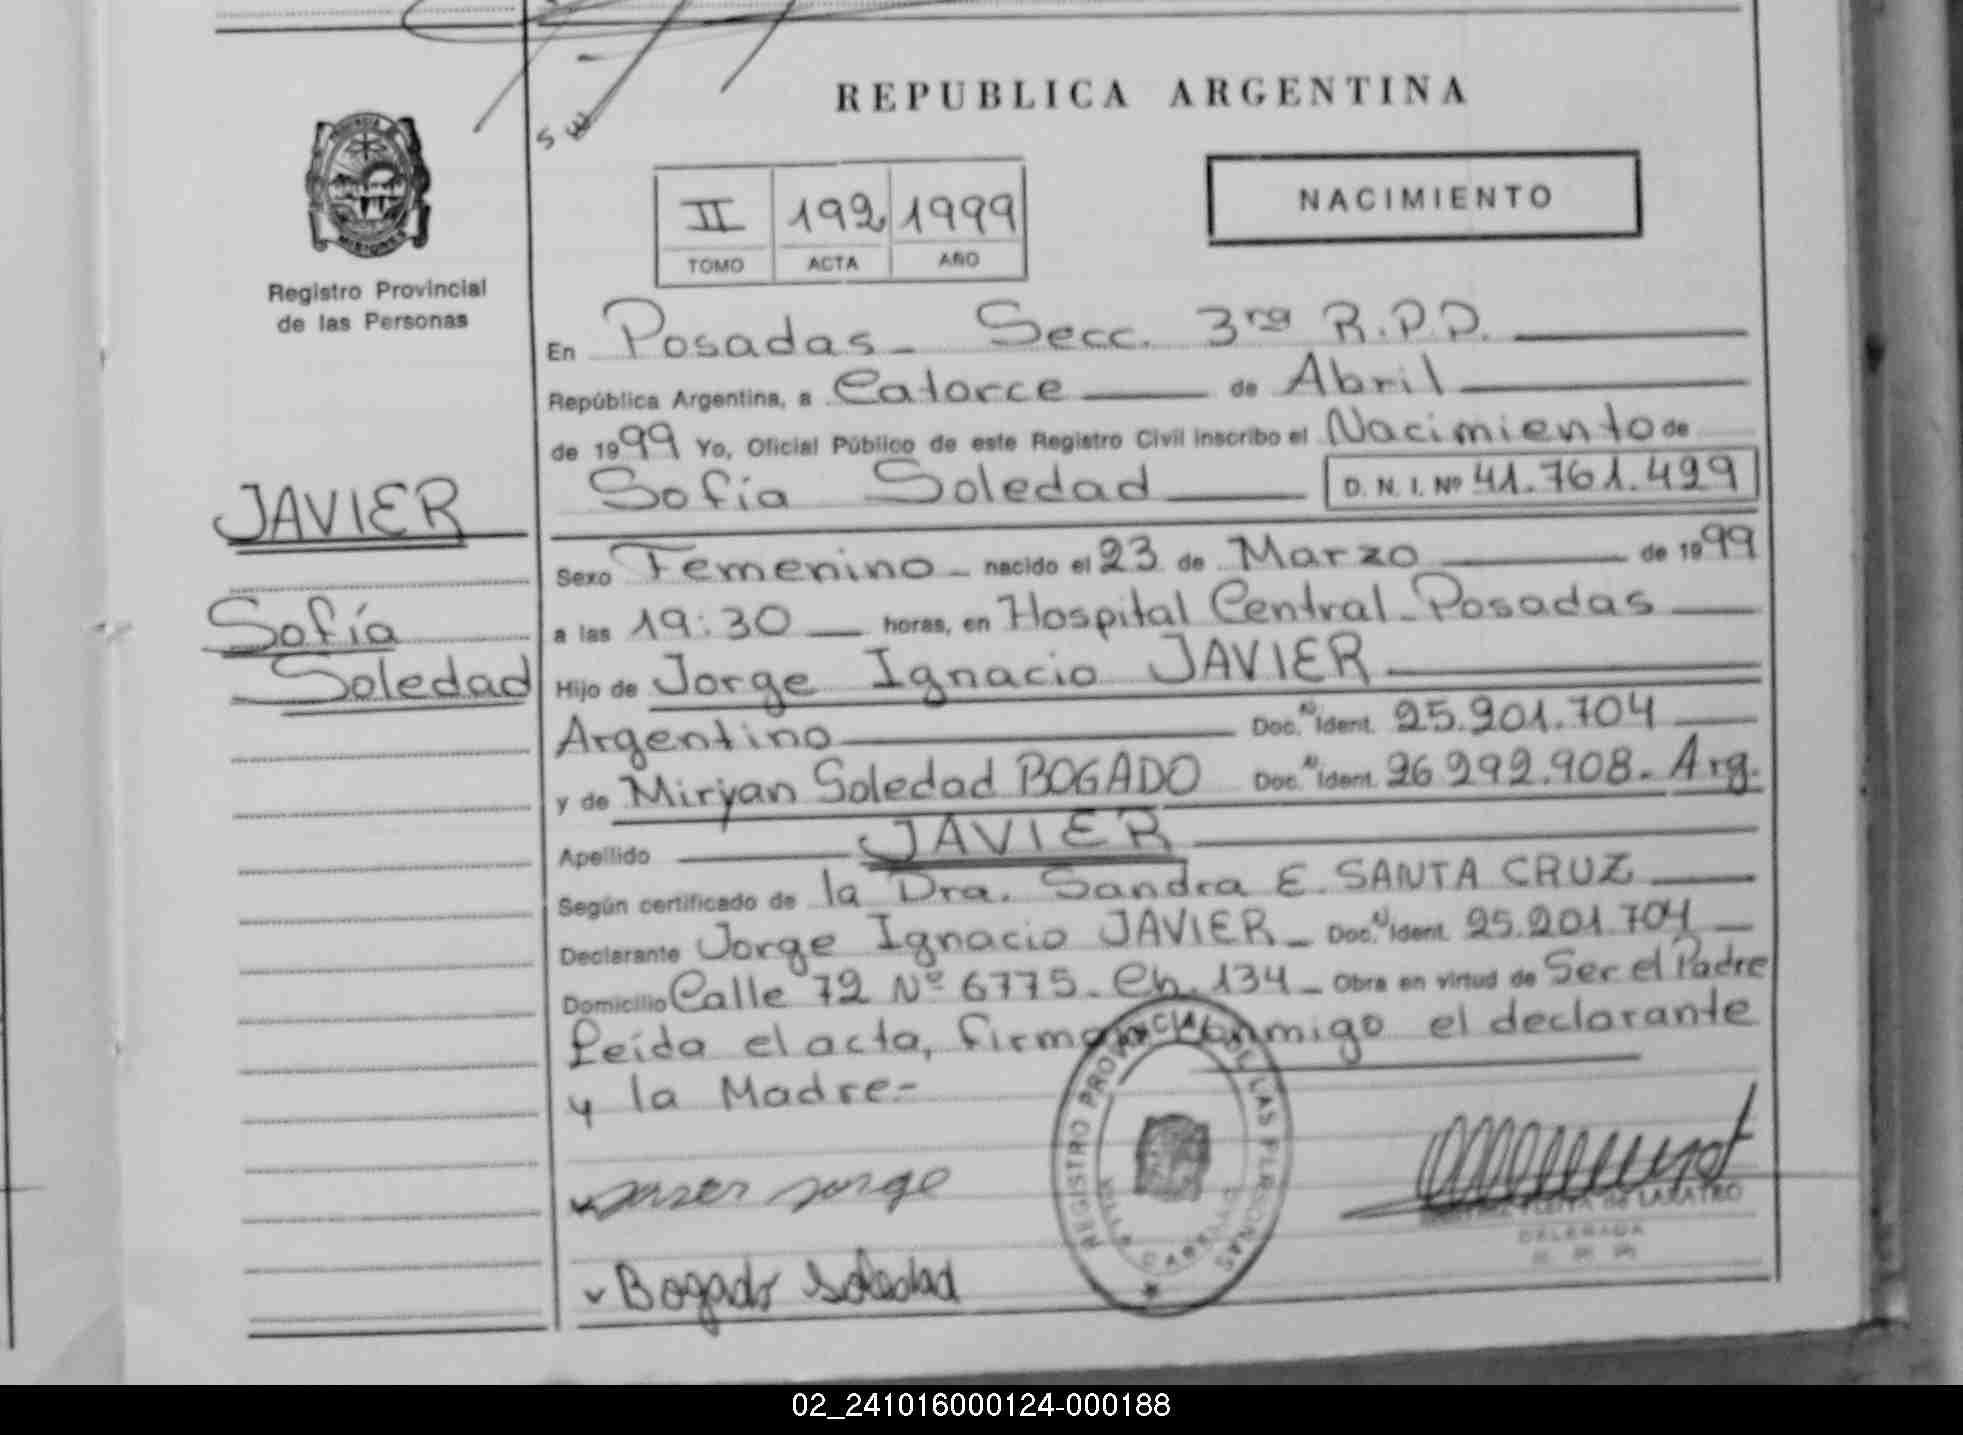 REPUBLICA ARGENTINA
NACIMIENTO
II 192 1999
TOMO ACTA AÑO
Registro Provincial
de las Personas
JAVIER
Sofía
Soledad
En Posadas - Secc. 3ra R.P.P.
República Argentina, a Catorce de Abril
de 1999 Yo, Oficial Público de este Registro Civil inscribo el Nacimiento de
Sofía Soledad D. N. I. Nº 41.761.499
Sexo Femenino - nacido el 23 de Marzo de 1999
a las 19:30 horas, en Hospital Central - Posadas
Hijo de Jorge Ignacio JAVIER
Argentino Doc. N Ident. 25.201.704
y de Miryan Soledad BOGADO Doc. N Ident. 26 292.908 - Arg.
Apellido JAVIER
Según certificado de la Dra. Sandra E. SANTA CRUZ
Declarante Jorge Ignacio JAVIER - Doc. N Ident. 25.201.704
Domicilio Calle 72 Nº 6775 - Ch. 134 - Obra en virtud de Ser el Padre
Leída el acta, firman conmigo el declarante
y la Madre -
REGISTRO PROVINCIAL DE LAS PERSONAS
Javier Jorge
Bogado Soledad
DELEGADA
02_241016000124-000188